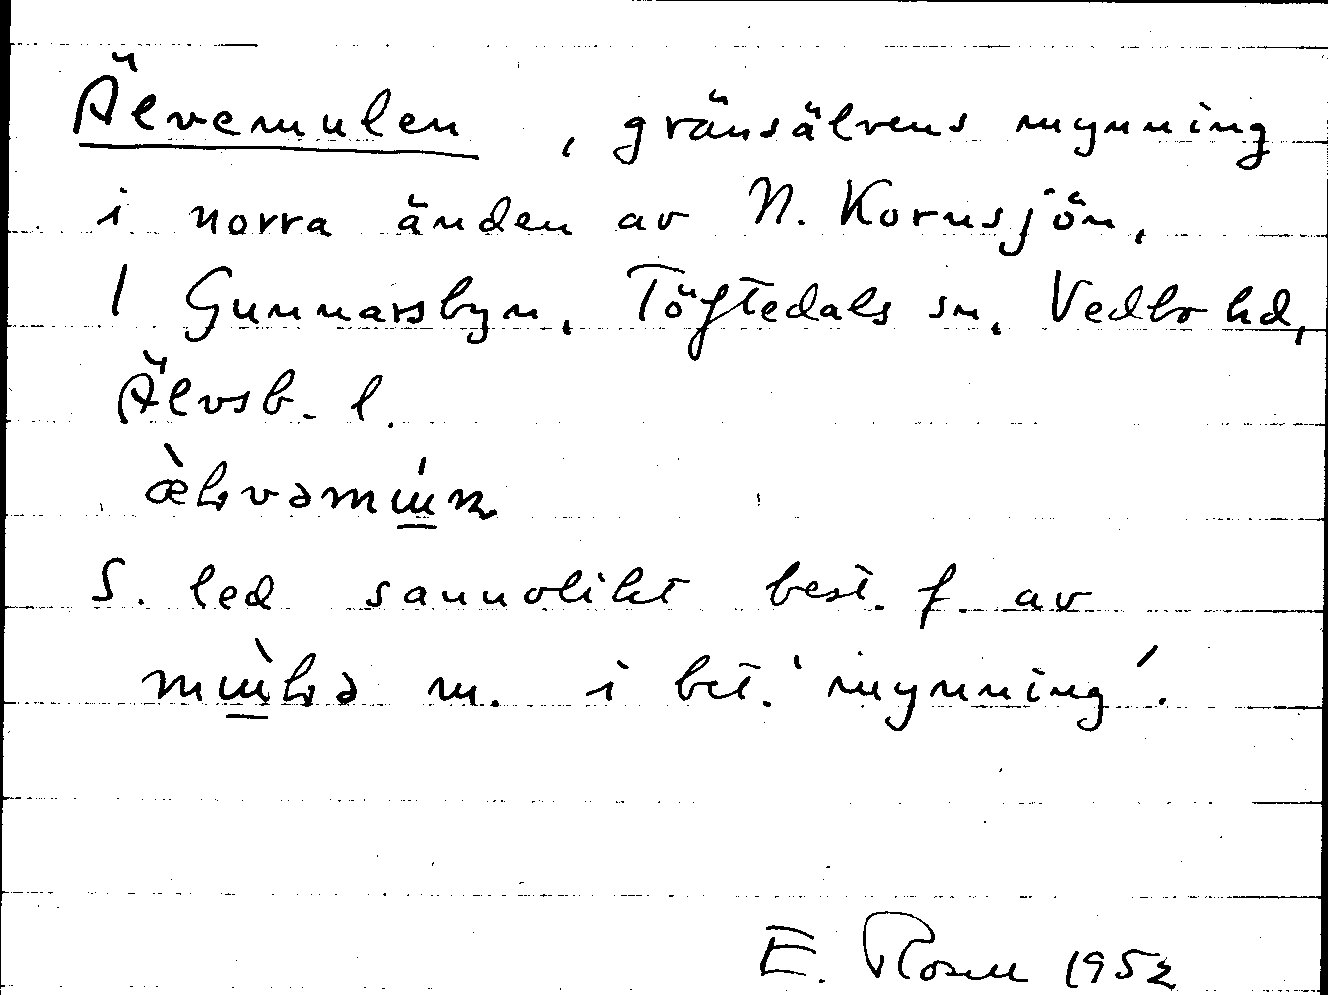 Älvemulen, gränsälvens mynning
i norra änden av N. Kornsjön,
1 Gunnarsbyn, Töftedals sn, Vedbo hd,
Älvsb. l.
S. led sannolikt best. f. av
m. i bet. 'mynning'.
E. Rosell 1952